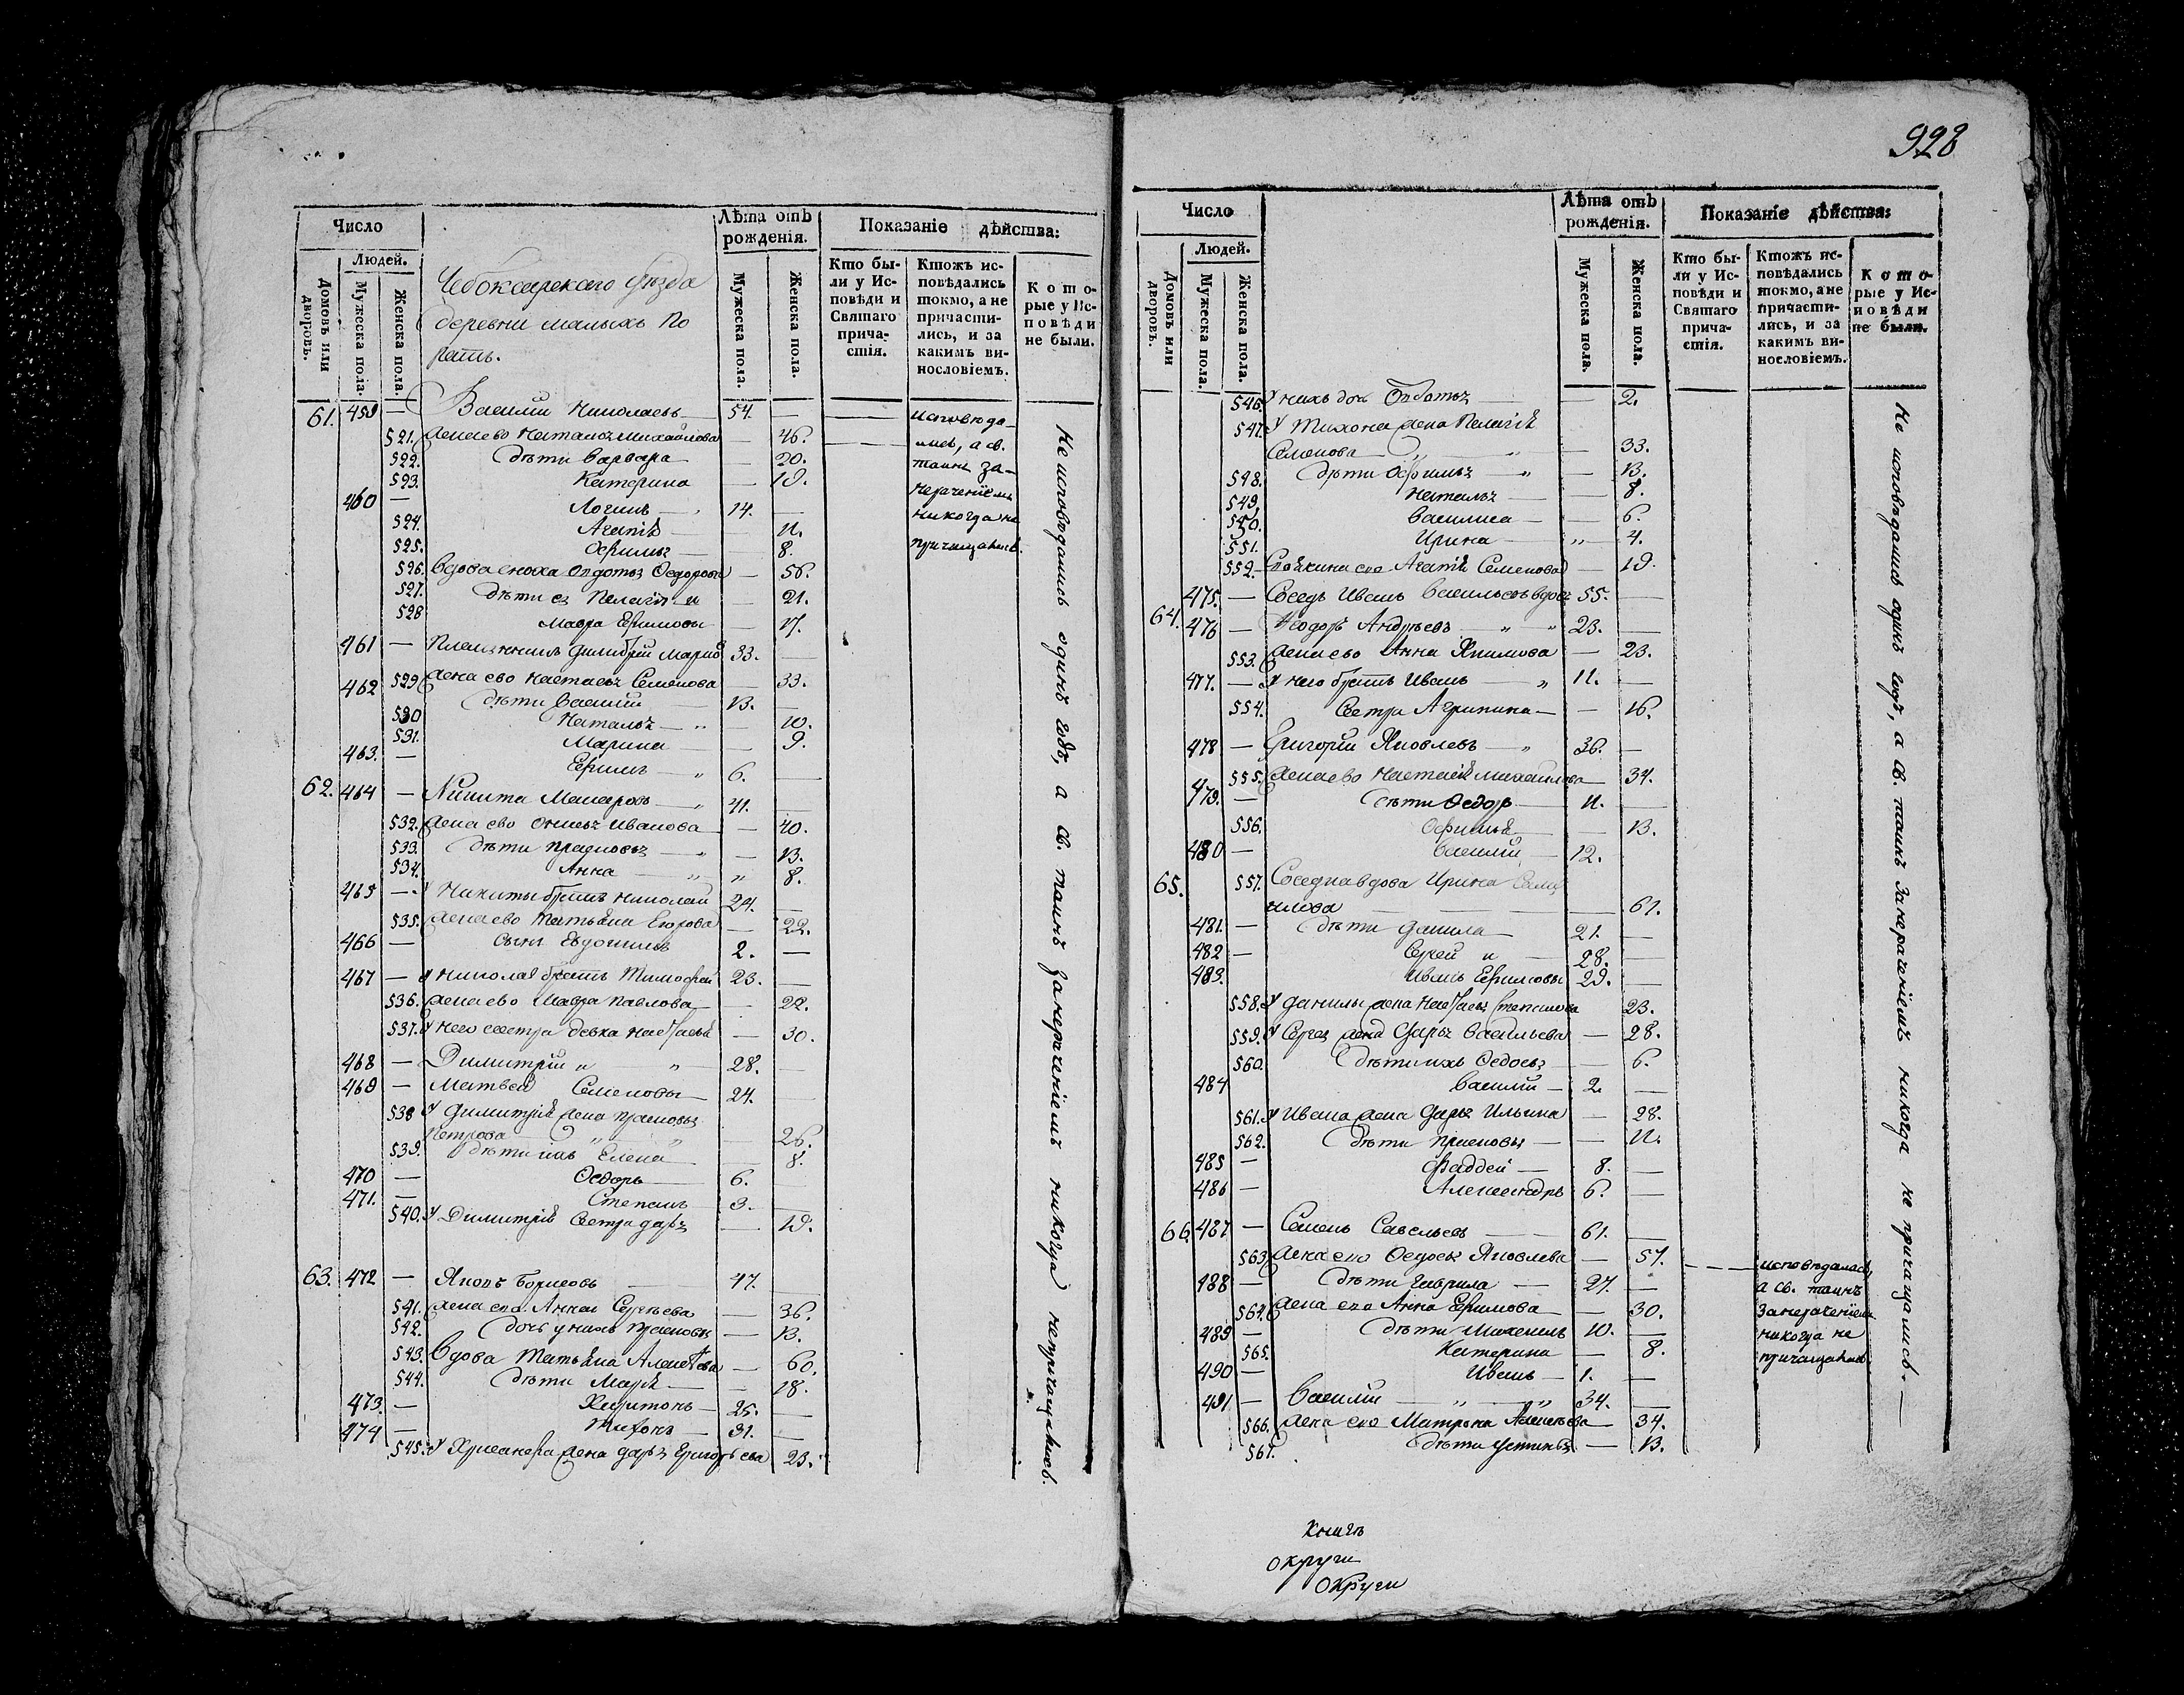 928
Число
Лѣта отъ рожденія.
Показаніе дѣйства:
Людей.
Домовъ или дворовъ.
Мужеска пола.
Женска пола.
Мужеска пола.
Женска пола.
Кто были у Исповѣди и Святаго причастія.
Ктожъ исповѣдались токмо, а не причастились, и за какимъ винословіемъ.
Которые у Исповѣди не были.
Чебоксарскаго уѣзда
деревни малыхъ По
ратъ.
61. 459 — Василий Николаевъ 54. —
521. жена ево Наталья Михайлова — 46.
522. дѣти Варвара — 20.
523. Катерина — 19.
460 — Логинъ 14. —
524. Агапiѣ — 11.
525. Офимья — 8.
526. Вдова сноха Овдотья Федорова — 56.
527. дѣти ея Пелагiя и — 21.
528 Мавра Ефимовы — 17.
461 — Племянникъ Димитрiй 33. —
529 жена ево Настасья Семенова — 33.
462 дѣти Василий 13. —
530 Наталья — 10.
531. Марина — 9.
463. — Ефимъ 6. —
62. 464 — Никита Макаровъ 41. —
532. жена ево Иванова — 40.
533. дѣти Прасковья — 13.
534. Анна " 8.
465 — У Никиты братъ Николай 24. —
535. жена ево Татьяна Егорова — 22.
466 — сынъ Евдокимъ 2. —
467 — у Николая братъ Тимофей 23. —
536. жена ево Мавра Павлова — 22.
537. У него сестра девка Настасья — 30.
468 — Димитрiй и 28. —
469 — Матвей Семеновы 24. —
538 У Димитрiя жена Прасковья
Петрова — 26.
539. дѣти ихъ Елена — 8.
470 — Федоръ 6. —
471. — Степанъ 3. —
540. У Димитрiя сестра Дарья — 19.
63. 472 — Яковъ Борисовъ 47. —
541. жена его Анна Сергѣева — 36.
542. дочь у нихъ Прасковья — 13.
543. Вдова Татьяна Алексѣева — 60.
544. дѣти Марiя — 18.
473. — Харитонъ 25. —
474 — Тихонъ 31. —
545. У жена Дарья Григорьева 23.
исповѣда-
лись, а св.
таинъ за-
нераченiемъ
никогда не
причащались.
Не исповѣдались одинъ годъ, а св. таинъ занераченiемъ никогда непричащались.
Число
Лѣта отъ рожденія.
Показаніе дѣйства:
Людей.
Домовъ или дворовъ.
Мужеска пола.
Женска пола.
Мужеска пола.
Женска пола.
Кто были у Исповѣди и Святаго причастія.
Ктожъ исповѣдались токмо, а не причастились, и за какимъ винословіемъ.
Которые у Исповѣди не были.
546. У нихъ дочь Овдотья — 2.
547. У Тихона жена Пелагiя
Семенова — 33.
548. дѣти Офимья — 13.
549. Наталья — 8.
550. Василиса — 6.
551. Ирина " 4.
552. его Агапiя Семенова — 19.
475. — Соседъ Иванъ Васильевъ вдовъ 55. —
64. 476 — Федоръ Андрѣевъ 23. —
553. жена ево Анна Якимова — 23.
477. — У него братъ Иванъ 11. —
554. Сестра Агрипина — 16.
478 — Григорiй Яковлевъ 36. —
555. жена ево Настасiя Михайлова 34.
479. — дѣти Федоръ 11. —
556. Офимья — 13.
480 — Василий 12.
65. 557. Соседка вдова Ирина
61.
481. — дѣти Данила 21. —
482 — Сергей и 28. —
483. Иванъ Ефимовы 29. —
558. У Данилы жена Настасья Степанова 23.
559. У Сергея жена Дарья Васильева — 28.
560. дѣти ихъ Федосья — 6.
484 Василий 2. —
561. У Ивана жена Дарья Ильина — 28.
562. дѣти Прасковья — 11.
485 — Фаддей 8. —
486 — Александръ 6. —
66. 487 — Семенъ Савельевъ 61. —
563. жена его Федосья Яковлева — 57.
488 — дѣти Гаврила 27. —
564. жена его Анна Ефимова — 30.
489 — дѣти Михаилъ 10. —
565. Катерина — 8.
490 — Иванъ 1. —
491 — Василий 34. —
566. жена его Матрена Алексѣева 34.
567. дѣти Устинья — 13.
исповѣдались,
а св. таинъ
занераченiемъ
никогда не
причащались.
Не исповѣдались одинъ годъ, а св. таинъ занераченiемъ никогда не причащались.
Книгъ
округи
округи